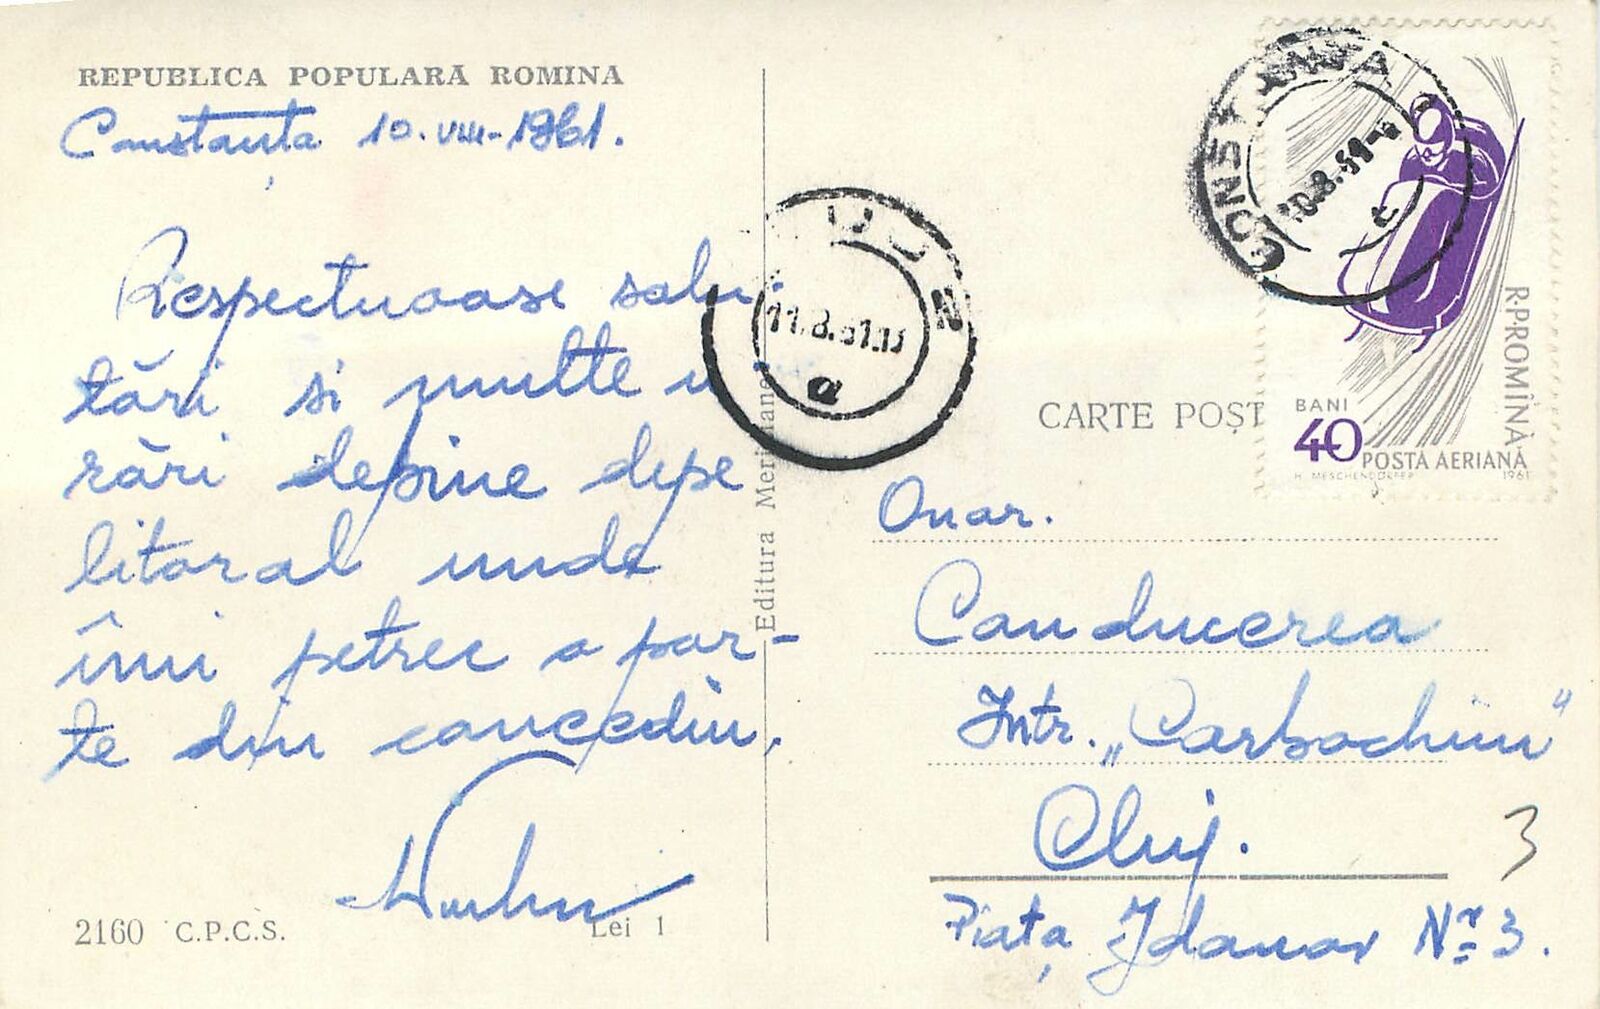 REPUBLICA POPULARĂ ROMINA
Constanța 10-VIII-1961.
Respectuoase salu-
tări si multe u-
rări depine depe
litoral unde
îmi petrec o par-
te din concediu.
2160 C.P.C.S.
Lei 1
Editura Meridiane
11.8.61.13
a
CONSTANȚA
10.8.61
R.P.ROMÎNĂ
BANI
40
POSTA AERIANĂ
H. MESCHENDÖRFER 1961
CARTE POȘT
Onor.
Conducerea
Intr. „Carbochim"
Cluj.
3
Piața Jdanov Nr. 3.